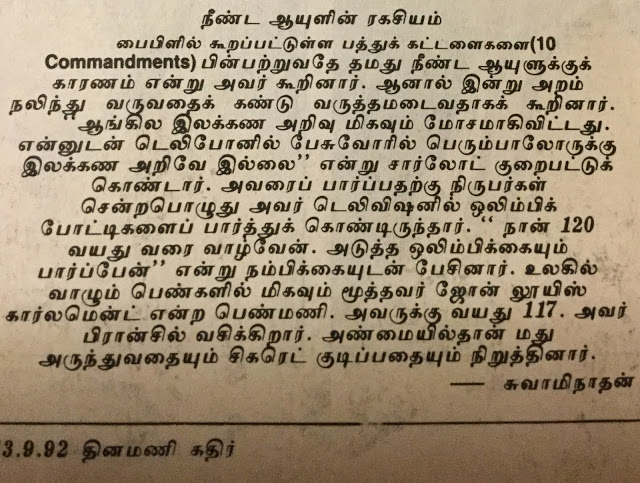 நீண்ட ஆயுளின் ரகசியம்
பைபிளில் கூறப்பட்டுள்ள பத்துக் கட்டளைகளை(10
Commandments) பின்பற்றுவதே தமது நீண்ட ஆயுளுக்குக்
காரணம் என்று அவர் கூறினார். ஆனால் இன்று அறம்
நலிந்து வருவதைக் கண்டு வருத்தமடைவதாகக் கூறினார்.
“ஆங்கில இலக்கண அறிவு மிகவும் மோசமாகிவிட்டது.
என்னுடன் டெலிபோனில் பேசுவோரில் பெரும்பாலோருக்கு
இலக்கண அறிவே இல்லை’’ என்று சார்லோட் குறைபட்டுக்
கொண்டார். அவரைப் பார்ப்பதற்கு நிருபர்கள்
சென்றபொழுது அவர் டெலிவிஷனில் ஒலிம்பிக்
போட்டிகளைப் பார்த்துக் கொண்டிருந்தார். ‘‘ நான் 120
வயது வரை வாழ்வேன். அடுத்த ஒலிம்பிக்கையும்
பார்ப்பேன்’’ என்று நம்பிக்கையுடன் பேசினார். உலகில்
வாழும் பெண்களில் மிகவும் மூத்தவர் ஜோன் லூயிஸ்
கார்லமென்ட் என்ற பெண்மணி. அவருக்கு வயது 117. அவர்
பிரான்சில் வசிக்கிறார். அண்மையில்தான் மது
அருந்துவதையும் சிகரெட் குடிப்பதையும் நிறுத்தினார்.
— சுவாமிநாதன்
3.9.92 தினமணி கதிர்